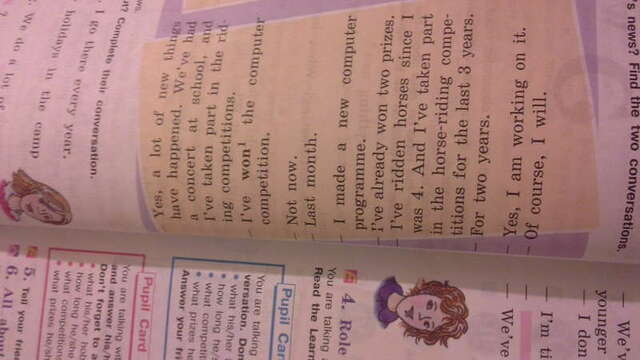 ws.
? Complete their conversation.
I go there every year.
holidays in the camp
We do a lot of
Yes, a lot of new things
have happened. We've had
a concert at school, and
I've taken part in the rid-
ing competitions.
– I've won¹ the computer
competition.
– Not now.
– Last month.
– I made a new computer
programme.
– I've already won two prizes.
– I've ridden horses since I
was 4. And I've taken part
in the horse-riding compe-
titions for the last 3 years.
– For two years.
– Yes, I am working on it.
– Of course, I will.
's news? Find the two conversations.
5. Tell your
6. All about
Pupil Card
You are talking
and answer his/h
Don't forget to a
• what his/her
• how long he/sh
• what competition
• what prizes he/sh
Pupil Car
You are talking
versation. Don
• what his/her
• how long he/s
• what competit
• what prizes he
Answer your fri
4. Role
You are talking
Read the Learn
– We've
– I'm ti
– I don
younger
– We'